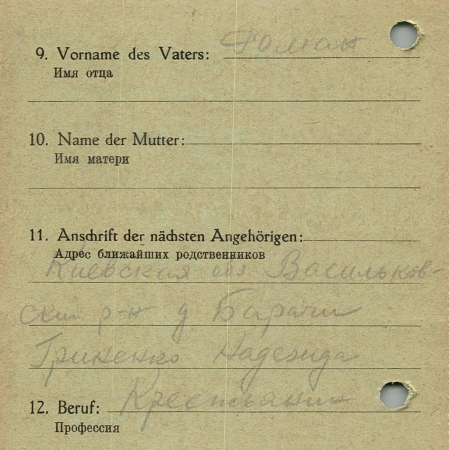 9. Vorname des Vaters: Роман
Имя отца
10. Name der Mutter:
Имя матери
11. Anschrift der nächsten Angehörigen:
Адрес ближайших родственников
Киевская обл Васильков-
ский р-н д. Барачи
Гриненко Надежда
12. Beruf: Крестьянин
Профессия